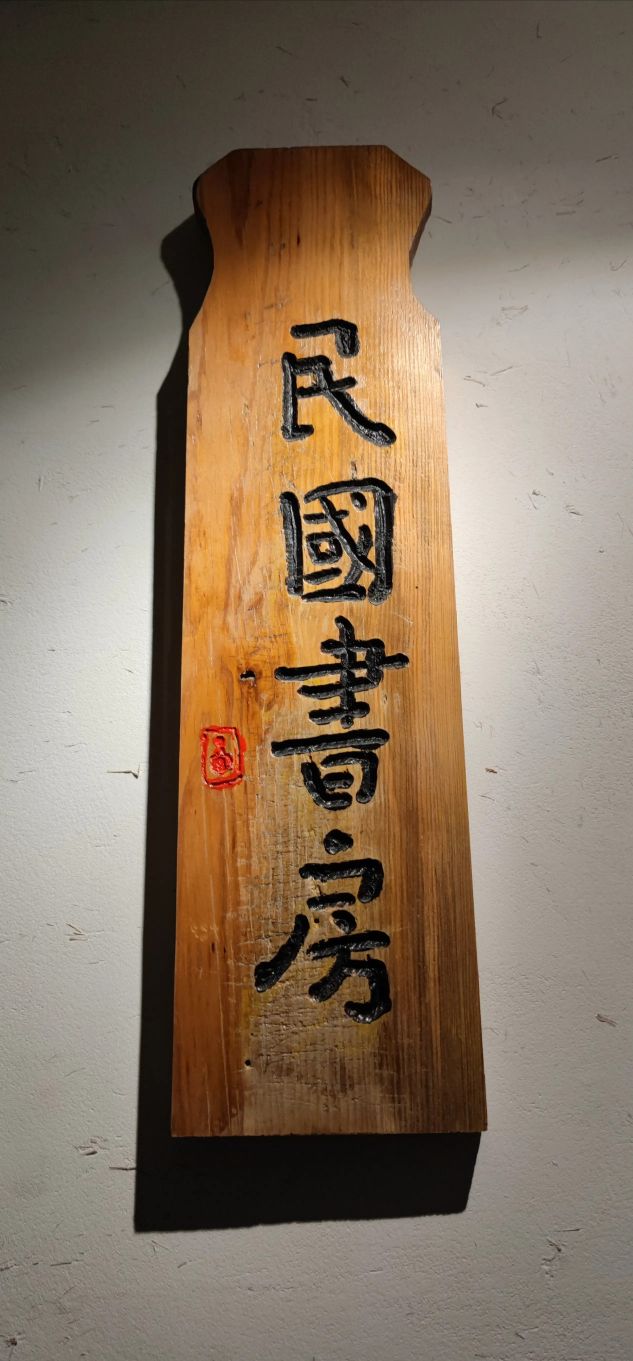 民國書房